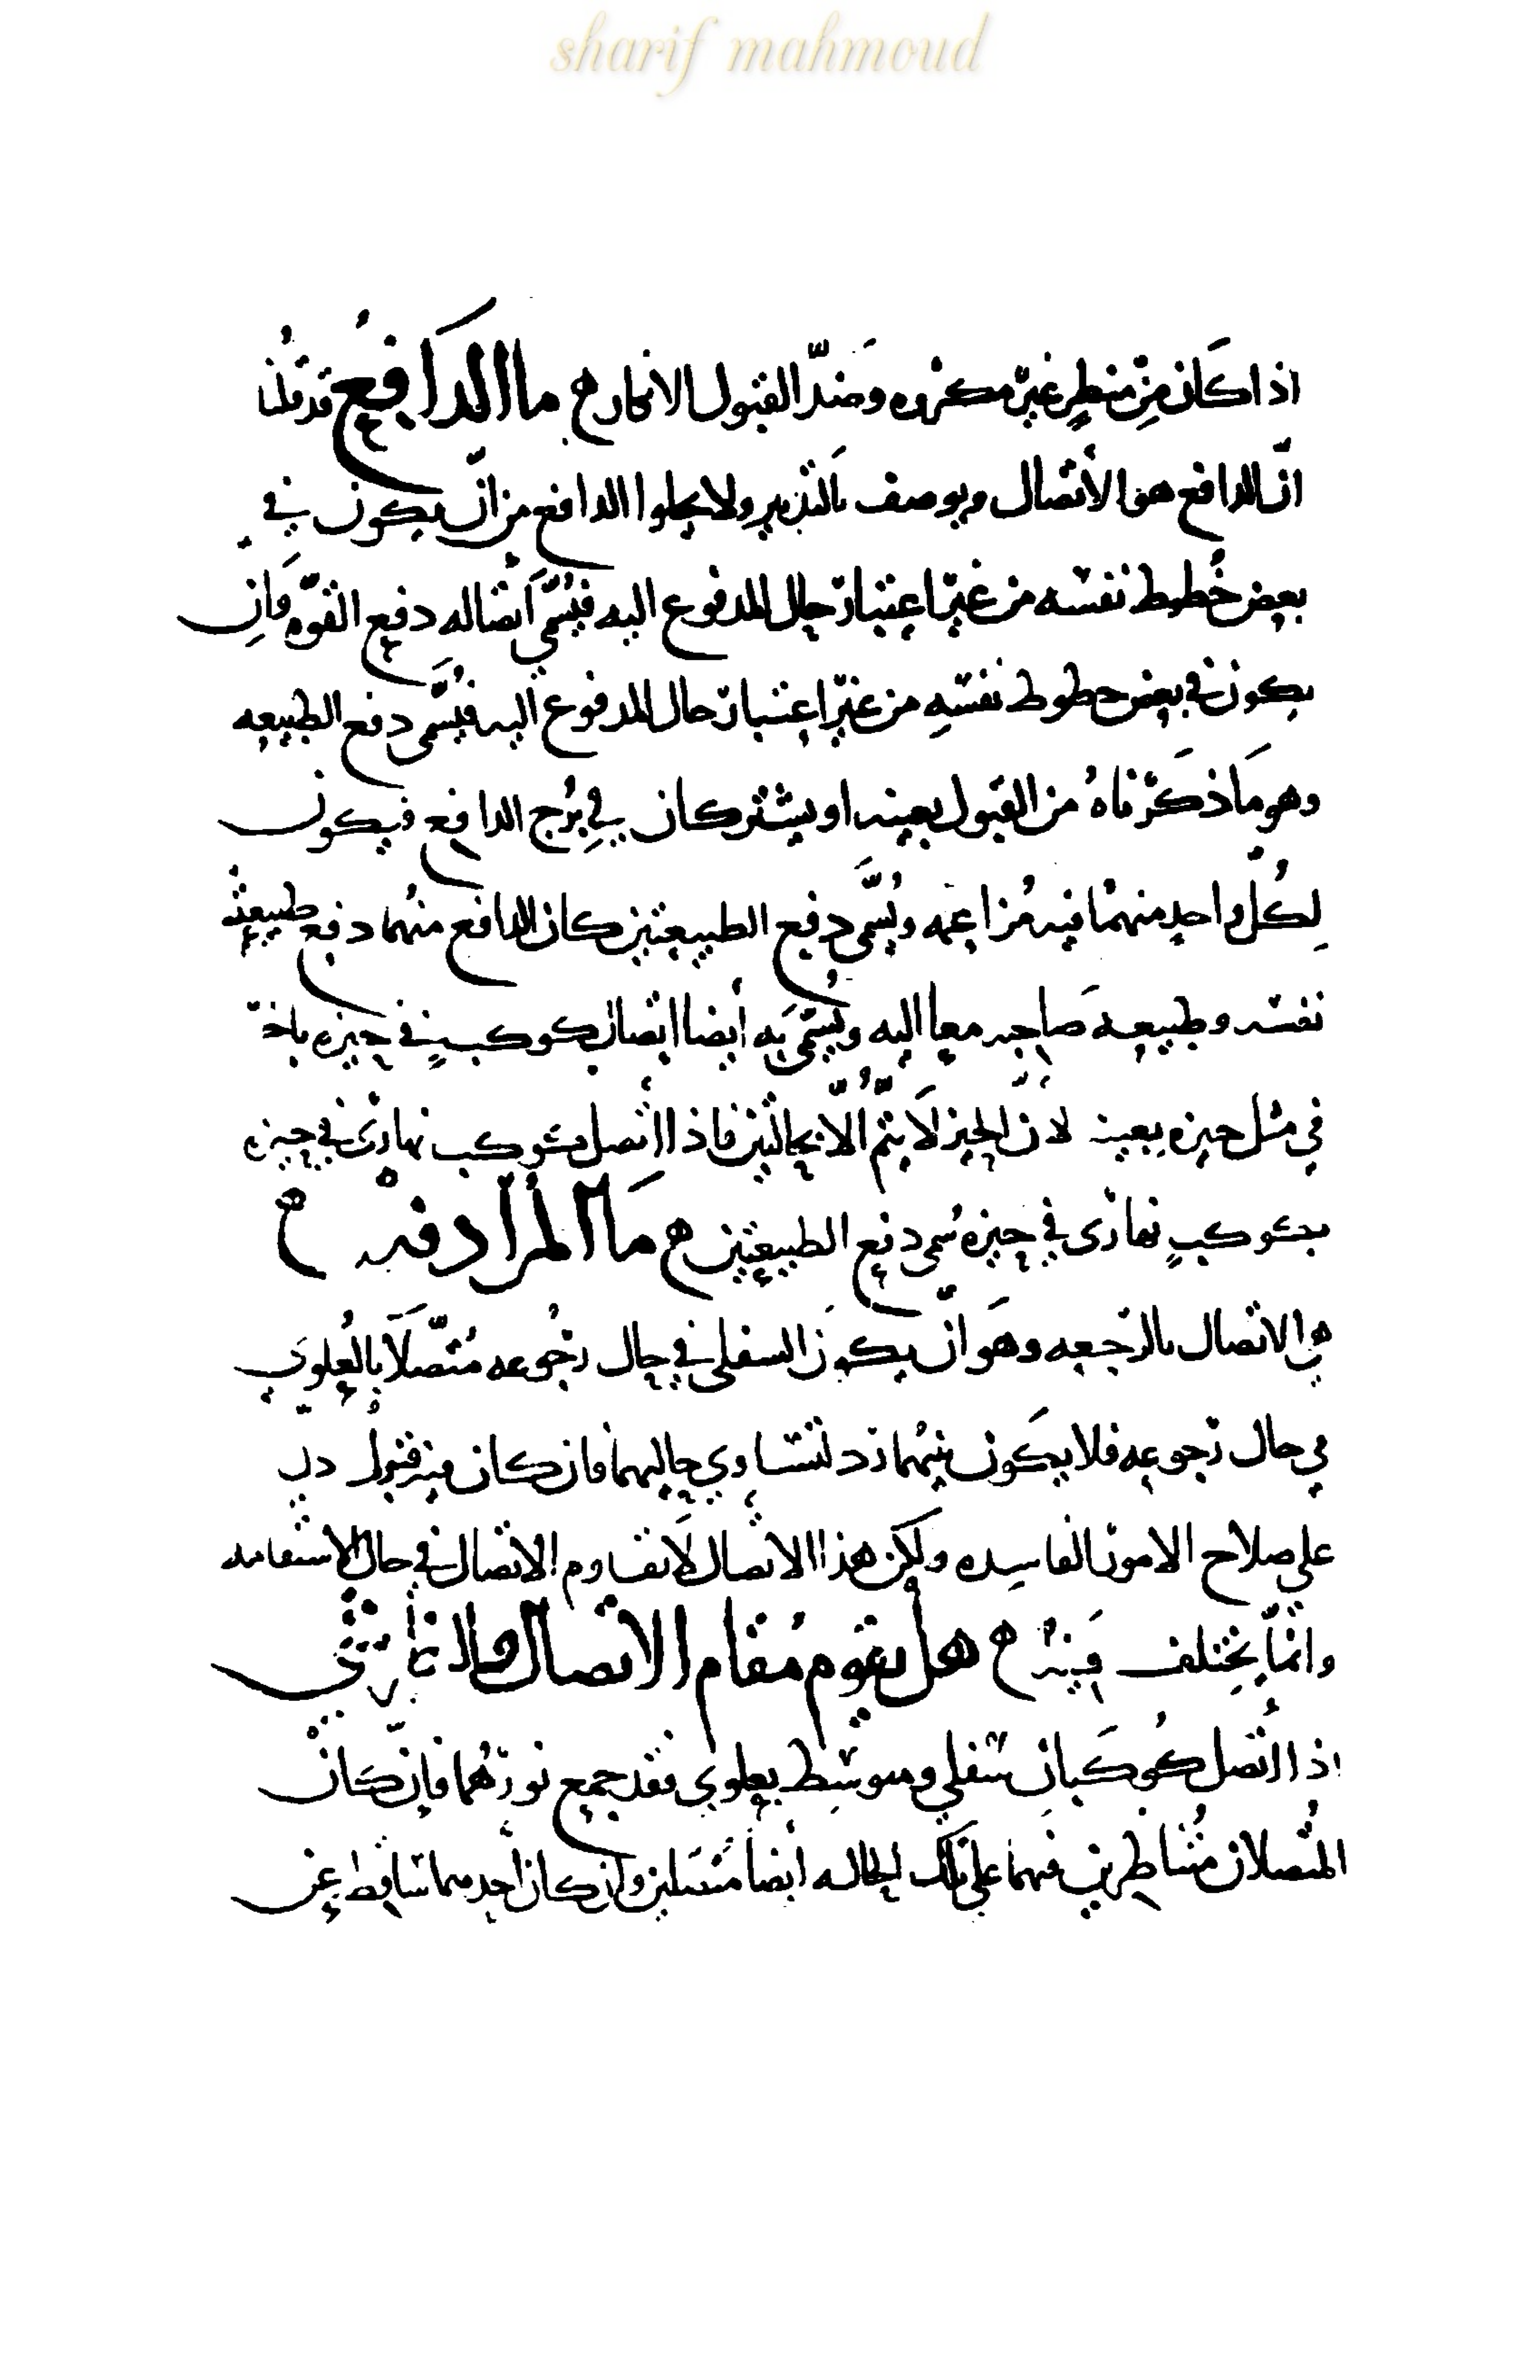 sharif mahmoud
اذا كان من منظر غير مكروه وضد القبول الانكار ه ما الدافع قد قلنا
ان الدافع هو الاتصال ويوصف بالتدبير ولا يخلوا الدافع من ان يكون في
بعض خطوط نفسه من غير اعتبار حال المدفوع اليه فيسمى اتصاله دفع القوه وان
يكون في بعض حطوط نفسه من غير اعتبار حال المدفوع اليه فيسمى دفع الطبيعه
وهو ما ذكرناه من القبول بعينه او يشتركان في برج الدافع فيكون
لكل واحد منهما فيه مزاعمه ويسمى دفع الطبيعتين كان الدافع منهما دفع طبيعه
نفسه وطبيعه صاحبه معا اليه ويسمى به أيضا اتصال كوكب في حيزه باخر
في مثل حيزه بعينه لان الحيز لا يتم الا بحالتين فاذا اتصل كوكب نهاري في حيزه
بكوكب نهاري في حيزه سمي دفع الطبيعتين ه ما المرادفه ح
هي الاتصال بالرجعه وهو ان يكون السفلي في حال رجوعه متصلا بالعلوي
في حال رجوعه فلا يكون بينهما رد لتساوي حاليهما فان كان فيه قبول دل
علي صلاح الامور الفاسده ولكن هذا الاتصال لا يقاوم الاتصال في حال الاستقامه
وانما يختلف فيه ه هل يقوم مقام الاتصال والانظار شي
اذا اتصل كوكبان سفلي ومتوسط بعلوي فقد جمع نورهما فان كان
المتصلان متناظرين فهما علي تلك الحاله أيضا متصلين وان كان أحدهما ساقط عن